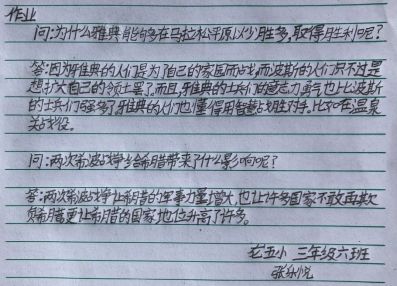 作业
问:为什么雅典能够在马拉松平原以少胜多,取得胜利呢?
答:因为雅典的人们是为了自己的家园而战,而波斯的人们只不过是
想扩大自己的领土罢了。而且,雅典的士兵们的意志力勇气也比波斯
的士兵们强多了,雅典的人们也懂得用智慧战胜对手。比如在温泉
关战役。
问:两次希波战争给希腊带来了什么影响呢?
答:两次希波战争让希腊的军事力量增大,也让许多国家不敢再欺
负希腊,更让希腊的国家地位升高了许多。
五小 三年级六班
张乐悦